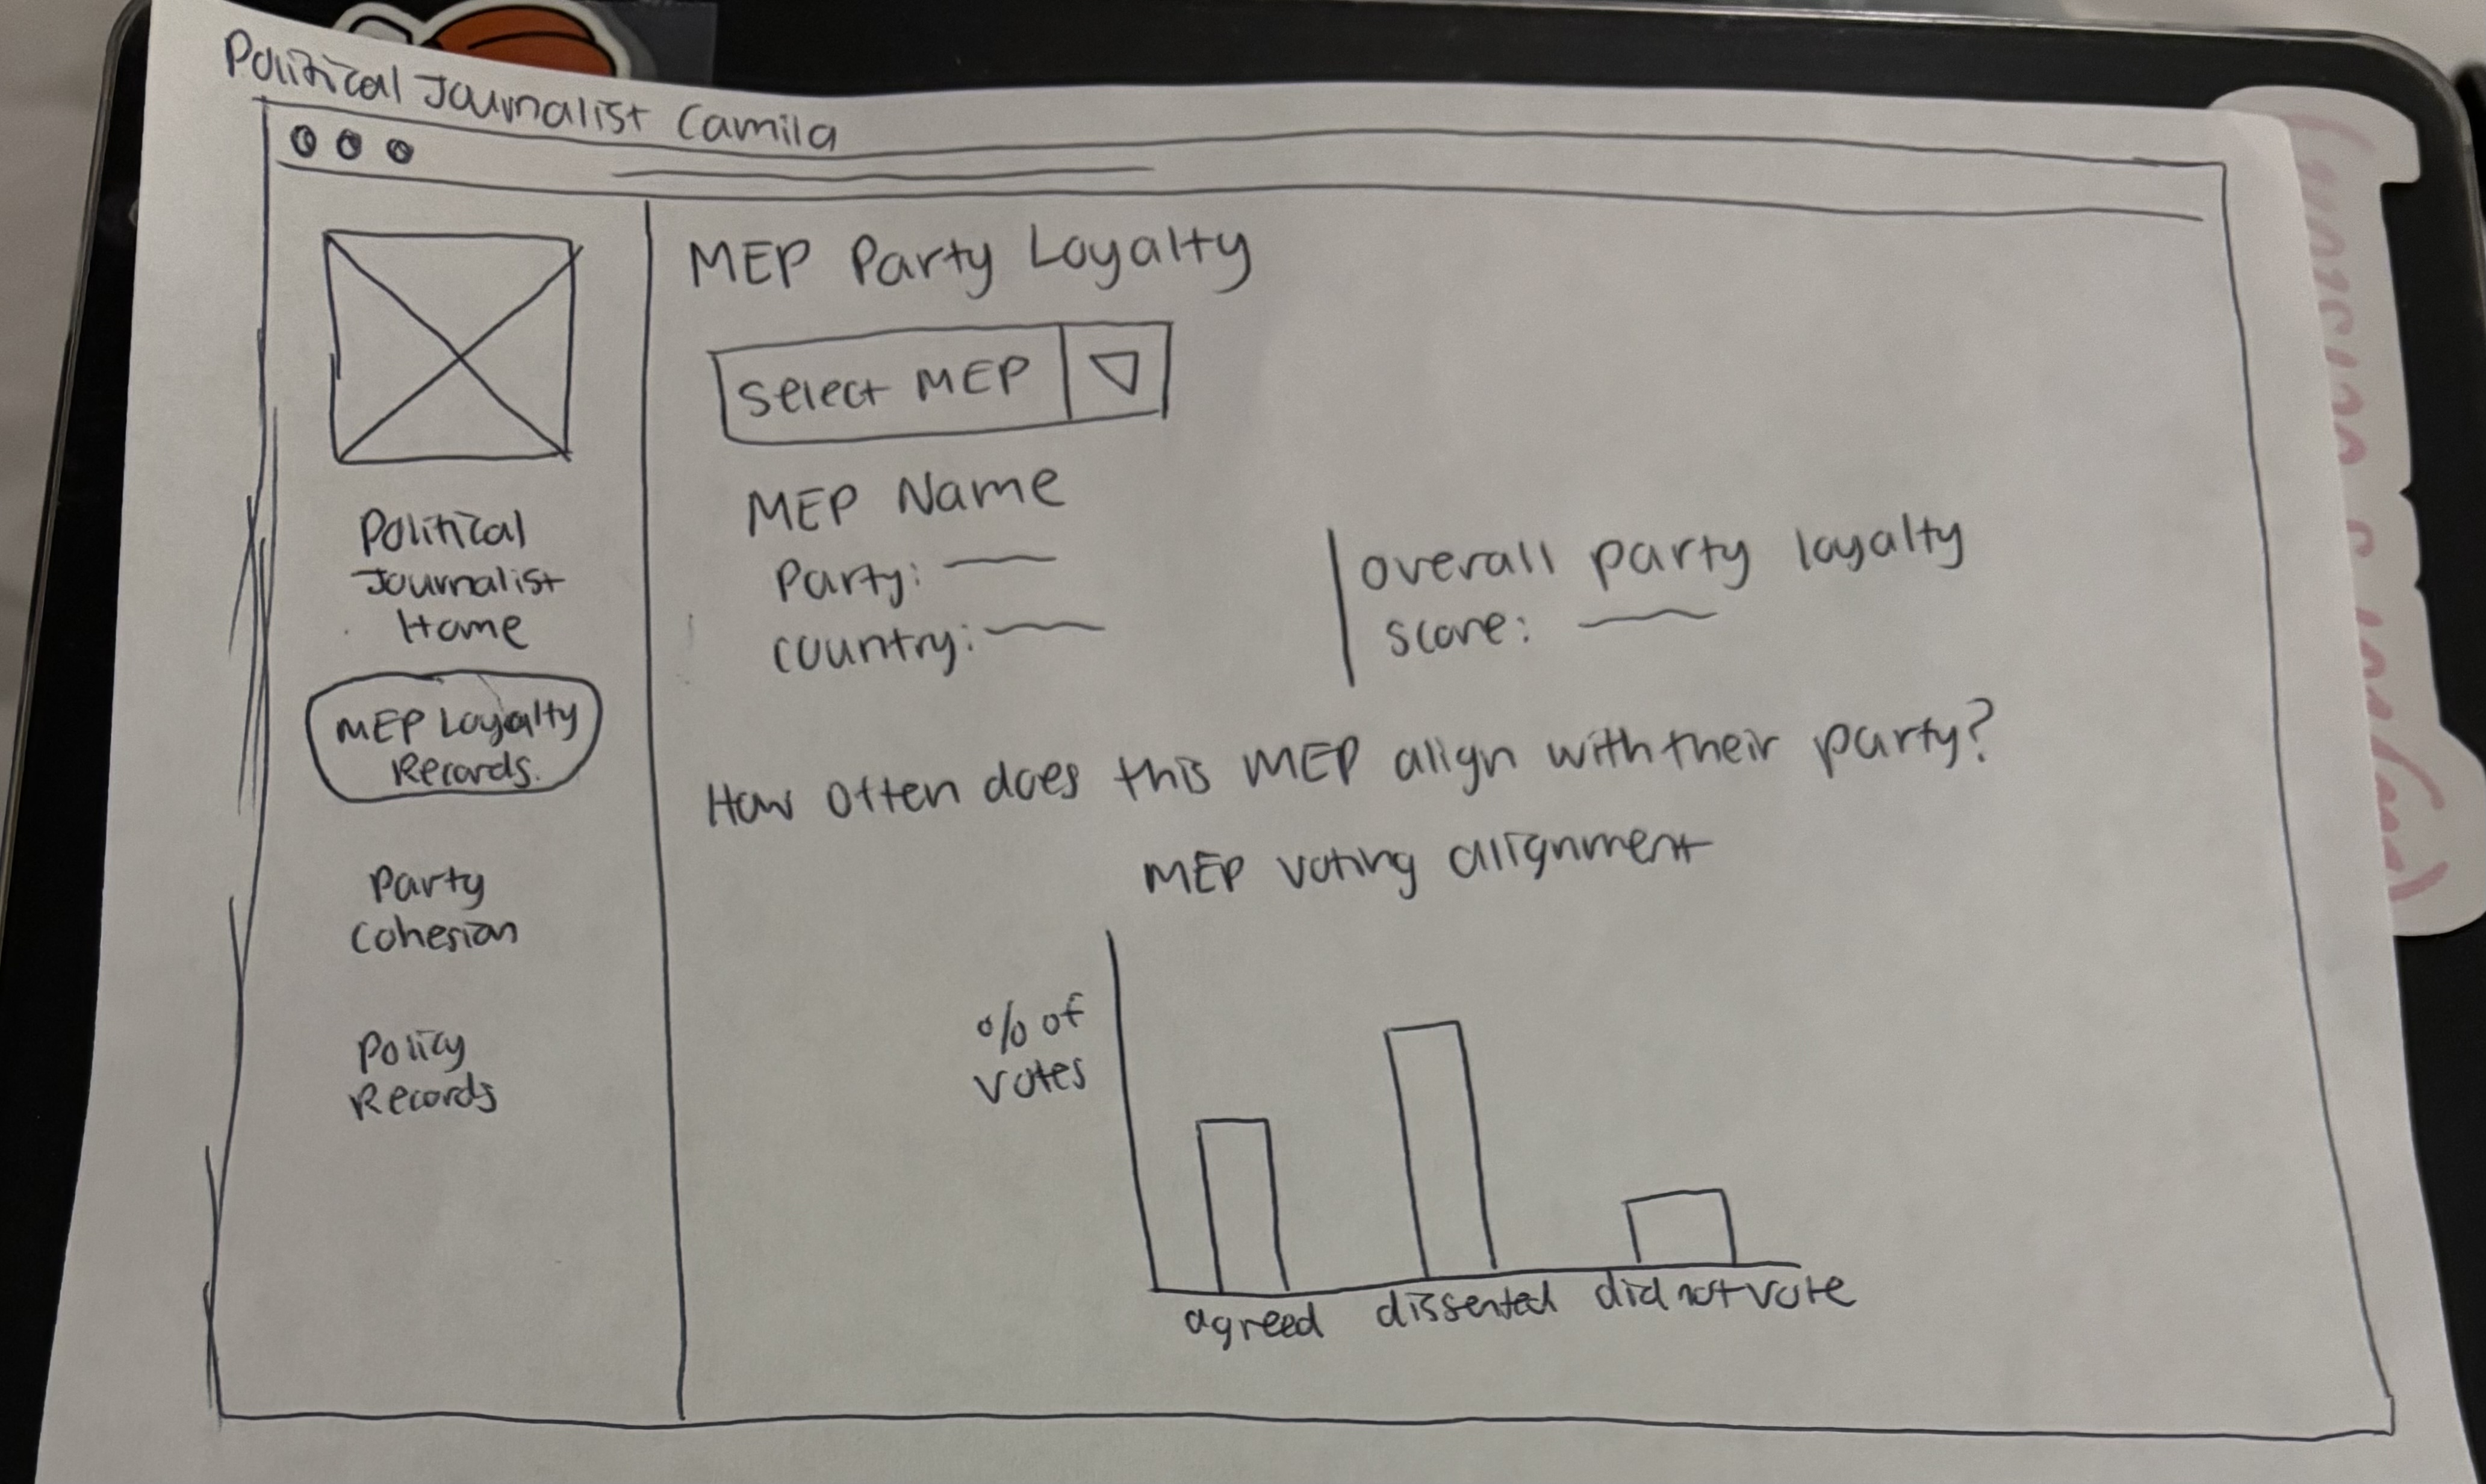 Political Journalist Camila
Political
Journalist
Home
MEP Loyalty
Records.
Party
Cohesion
Policy
Records
MEP Party Loyalty
Select MEP
MEP Name
Party:
country:
overall party loyalty
score:
How often does this MEP align with their party?
MEP voting alignment
% of
votes
agreed dissented did not vote